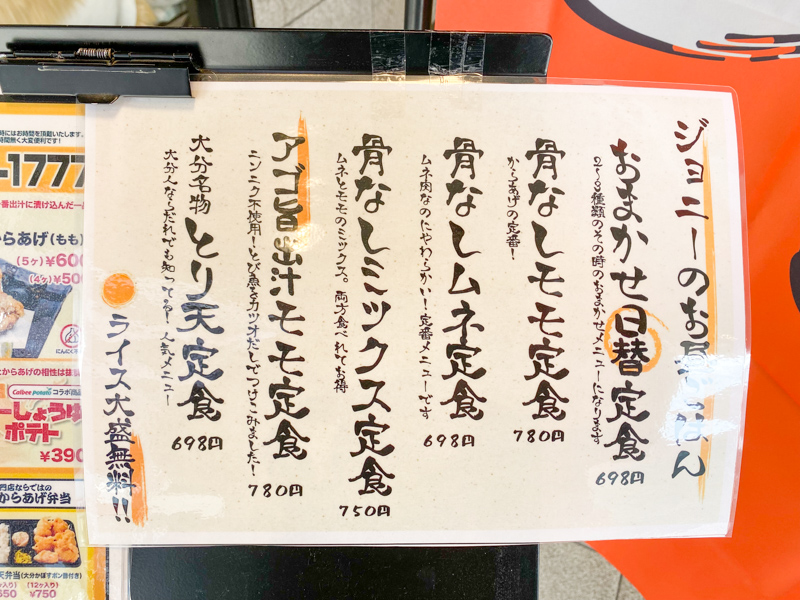 ジョニーのお昼ごはん
おまかせ日替定食
2〜3種類のその時のおまかせメニューになります
698円
骨なしモモ定食
からあげの定番!
780円
骨なしムネ定食
ムネ肉なのにやわらかい!定番メニューです
698円
骨なしミックス定食
ムネとモモのミックス。両方食べれてお得
750円
アゴ旨出汁モモ定食
ニンニク不使用!とび魚とカツオだしでつけこみました!
780円
大分名物 とり天定食
大分人ならだれでも知ってる!人気メニュー
698円
ライス大盛無料!!
時にはお時間を頂戴いたします。
-1777
番出汁に漬け込んだ一
からあげ(もも)
(5ヶ)¥600
(4ヶ)¥500
からあげの相性は抜
Calbee potato コラボ商品
ーしょうゆ
ポテト
¥390
門店ならではの
からあげ弁当
天弁当(大分かぼすポン酢付き)
(12ヶ入り)
¥750